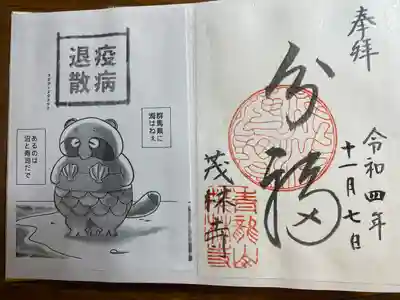 疫病
退散
群馬県に
海はねぇ
あるのは
沼と
奉拝
令和四年
十一月七日
分福
茂林寺
青龍山
茂林寺